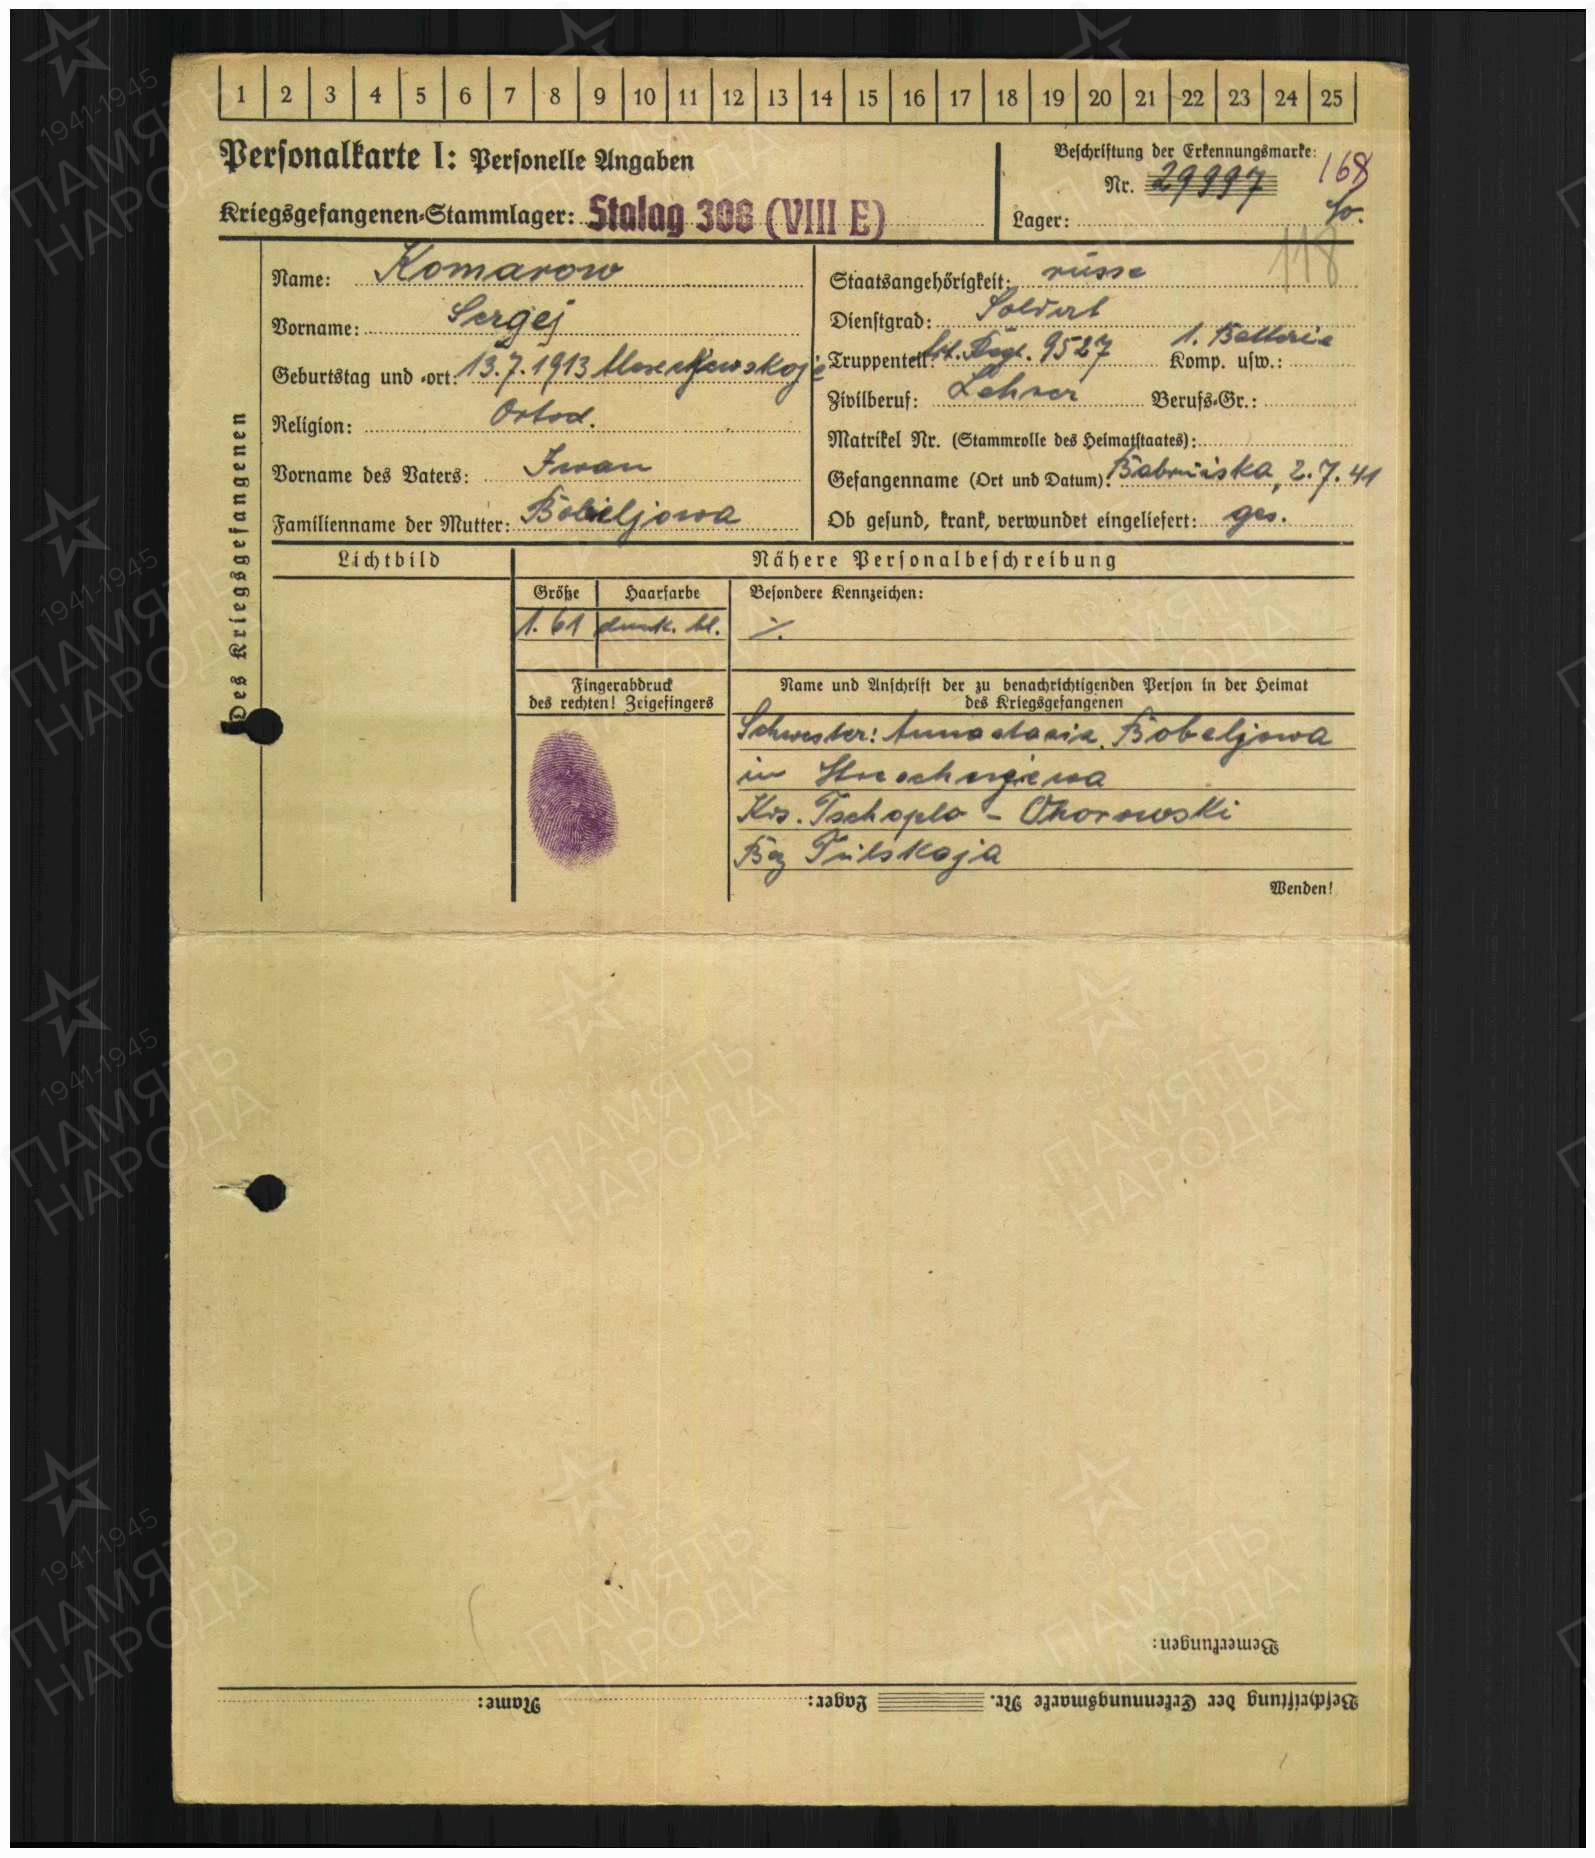 1 2 3 4 5 6 7 8 9 10 11 12 13 14 15 16 17 18 19 20 21 22 23 24 25
Personalkarte I: Personelle Angaben
Kriegsgefangenen-Stammlager: Stalag 308 (VIII E)
Beschriftung der Erkennungsmarke: 168
Nr. 29997
Lager:
118
Des Kriegsgefangenen
Name: Komarow
Vorname: Sergej
Geburtstag und -ort: 13.7.1913
Religion: Ortod.
Vorname des Vaters: Iwan
Familienname der Mutter: Bobeljowa
Staatsangehörigkeit: russe
Dienstgrad: Soldat
Truppenteil: Art. Regt. 9527 Komp. usw.: 1. Batterie
Zivilberuf: Lehrer Berufs-Gr.:
Matrikel Nr. (Stammrolle des Heimatstaates):
Gefangenname (Ort und Datum): Babruiska, 2.7.41
Ob gesund, krank, verwundet eingeliefert: ges.
Lichtbild
Nähere Personalbeschreibung
Größe Haarfarbe Besondere Kennzeichen:
1.61 dunk. bl. ./.
Fingerabdruck
des rechten! Zeigefingers
Name und Anschrift der zu benachrichtigenden Person in der Heimat
des Kriegsgefangenen
Schwester: Annastasia Bobeljowa
in
Krs. Tschoplo - Oborowski
Bez Tulskaja
Wenden!
Bemerkungen:
Beschriftung der Erkennungsmarke Nr. Lager: Name:
1941-1945
ПАМЯТЬ
НАРОДА